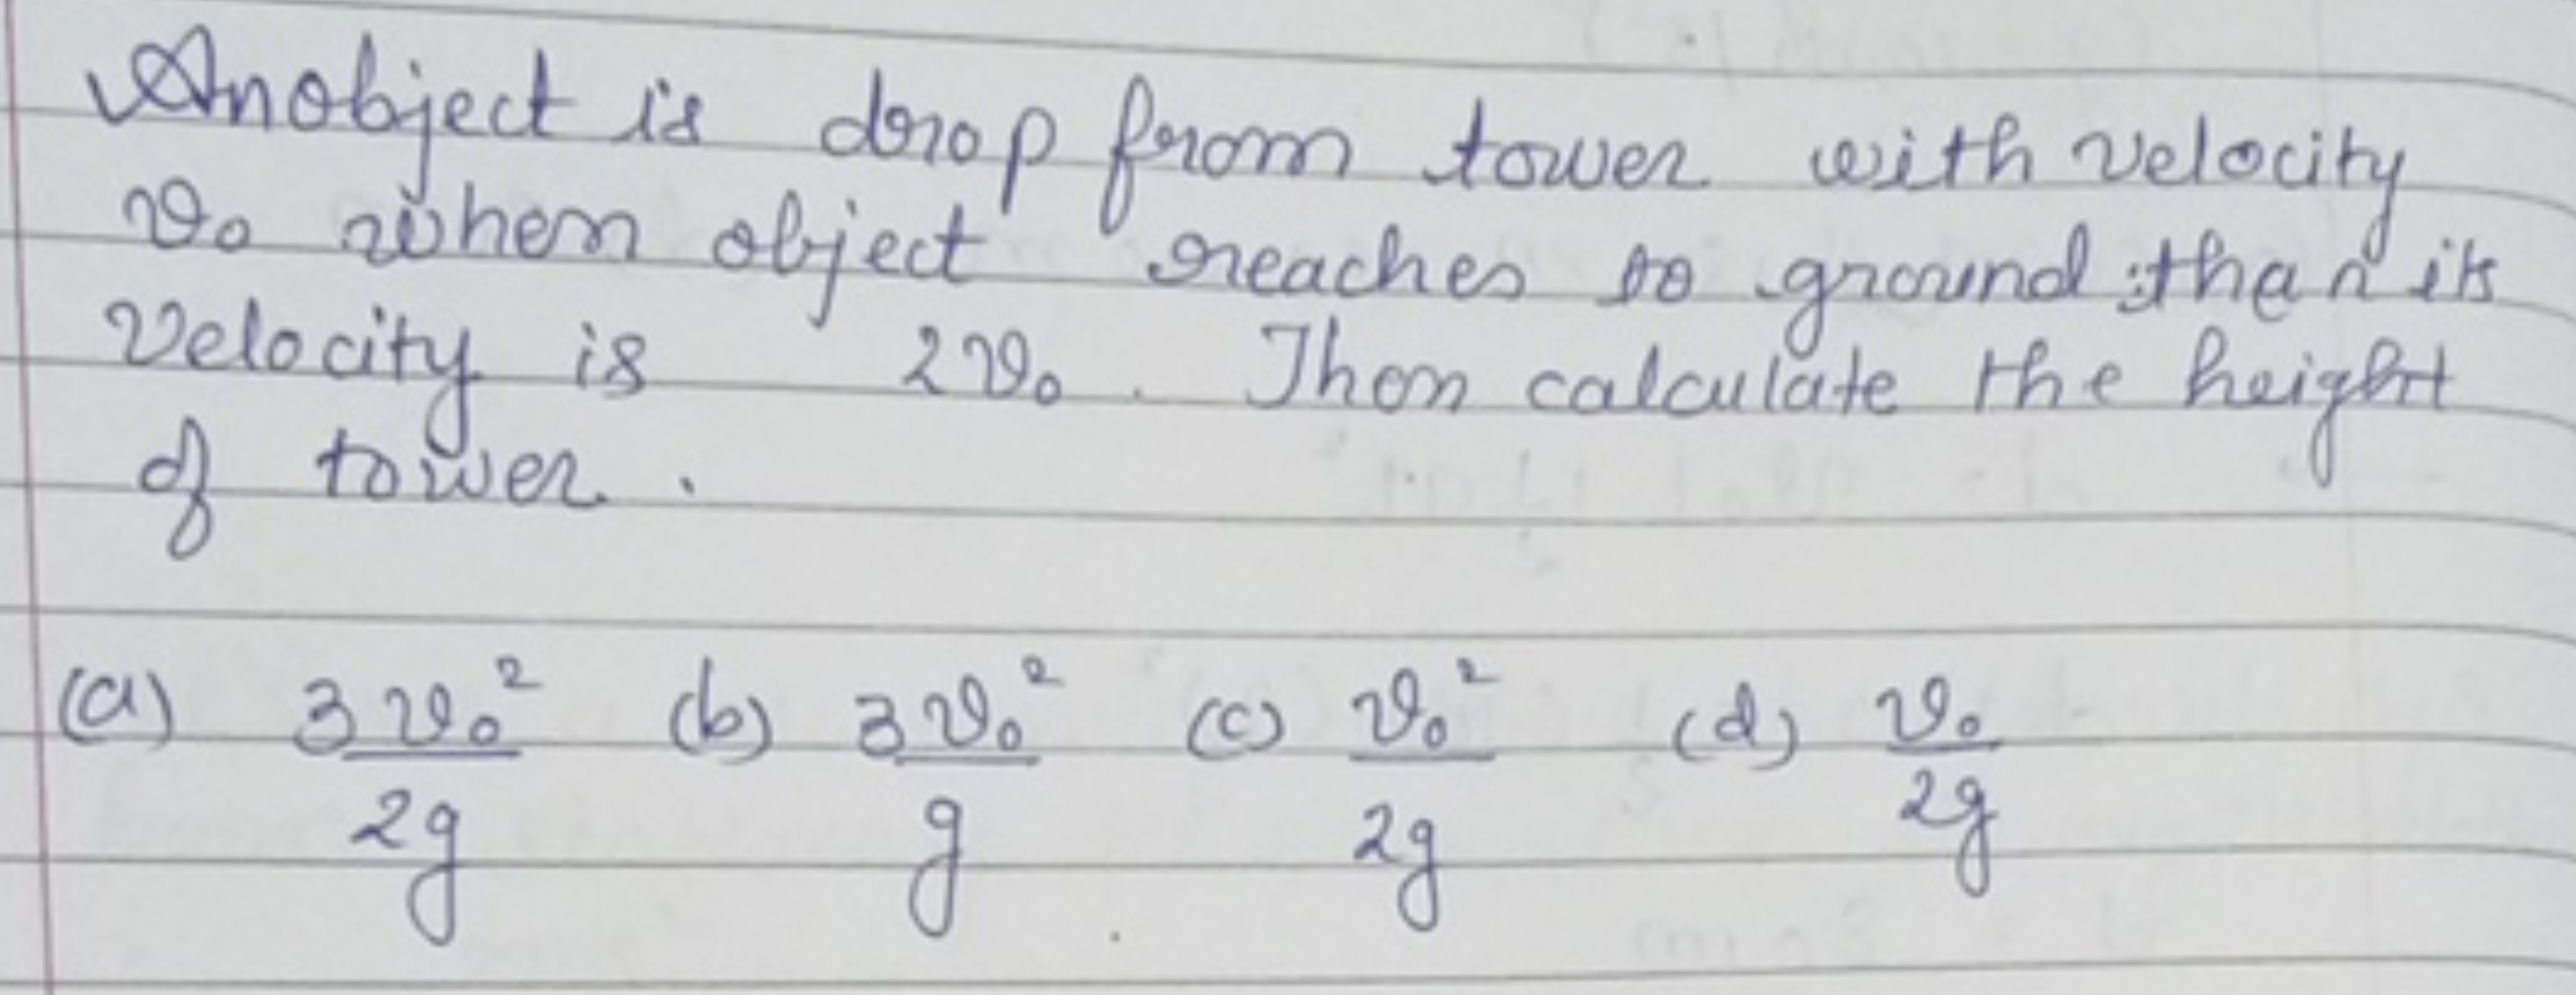 An object is drop from tower with velocity
v₀ when object reaches to ground than its
velocity is 2v₀. Then calculate the height
of tower.
(a) 3v₀²/2g (b) 3v₀²/g (c) v₀²/2g (d) v₀/2g